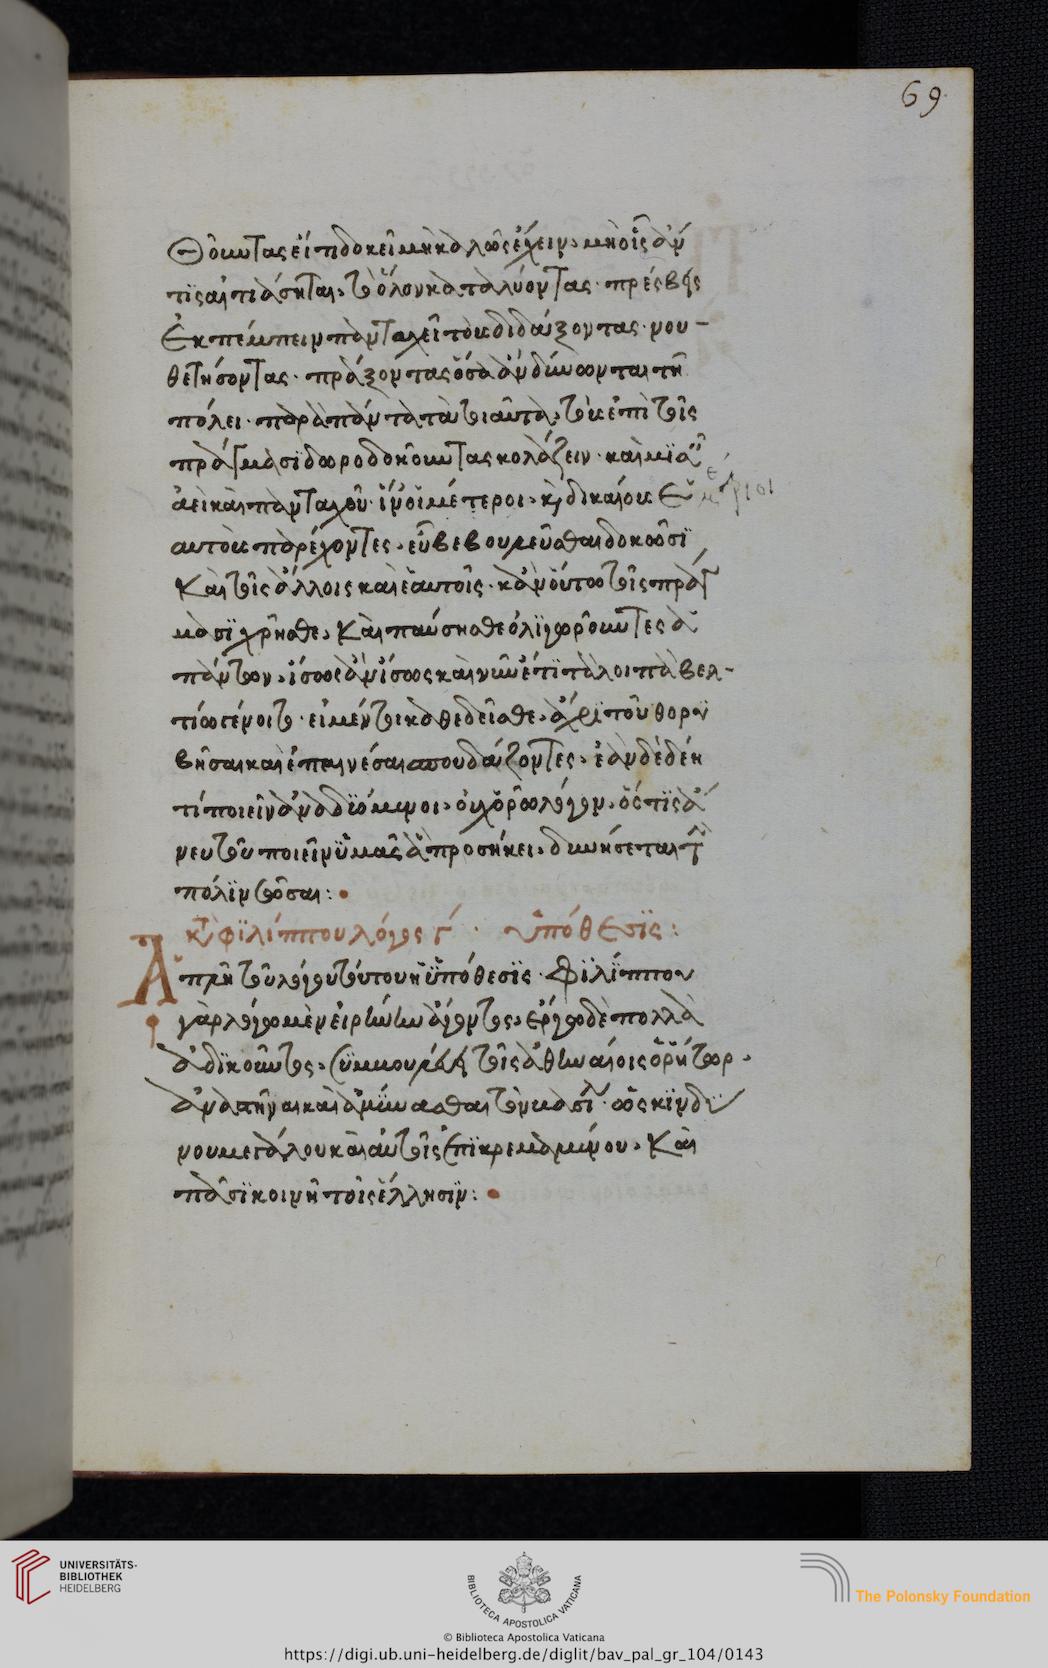 69
θοῦντας εἴ τι δοκεῖ μὴ καλῶς ἔχειν, μὴ οἷς ἄν
τις αἰτιάσηται, τὸ ὅλον καταλύοντας· πρέσβεις
ἐκπέμπειν πανταχεῖ τοὺς διδάξοντας· νου-
θετήσοντας· πράξοντας ὅσα ἂν δύνωνται τῆ
πόλει· παρὰ πάντα ταῦτα, τοὺς ἐπὶ τοῖς
πράγμασι δωροδοκοῦντας κολάζειν· καὶ μισεῖν
ἀεὶ καὶ πανταχοῦ· ἵν' οἱ μέτριοι, καὶ δικαίους
αὐτοὺς παρέχοντες, εὖ βεβουλεῦσθαι δοκῶσι
καὶ τοῖς ἄλλοις καὶ ἑαυτοῖς· κἂν οὕτω τοῖς πράγ
μασι χρῆσθε, καὶ παύσησθε ὀλιγωροῦντες ἁ
πάντων, ἴσως ἂν ἴσως καὶ νῦν ἔτι τἄλλοιπα βελ-
τίω γένοιτο· εἰ μέντοι καθεδεῖσθε, ἄχρι τοῦ θορυ
βῆσαι καὶ ἐπαινέσαι σπουδάζοντες, ἐὰν δὲ δέη
τί ποιεῖν ἀναδυόμενοι, οὐχ ὁρῶ λόγον, ὅστις ἄ
νευ τοῦ ποιεῖν ὑμᾶς ἃ προσήκει, δυνήσεται τὴν
πόλιν σῶσαι:
κατὰ φιλίππου λόγος γ΄· ὑπόθεσις:
Ἁπλῆ τοῦ λόγου τούτου ἡ ὑπόθεσις· Φιλίππου
γὰρ λόγω μὲν εἰρήνην ἄγοντος, ἔργω δὲ πολλὰ
ἀδικοῦντος, συμβουλεύει τοῖς ἀθηναίοις ὁ ῥήτωρ,
ἀναστῆναι καὶ ἀμύνασθαι τὸν βασιλέα· ὡς κινδύ
νου μεγάλου καὶ αὐτοῖς ἐπικρεμαμένου, καὶ
πᾶσι κοινῆ τοῖς ἕλλησιν:
UNIVERSITÄTS-
BIBLIOTHEK
HEIDELBERG
BIBLIOTECA APOSTOLICA VATICANA
The Polonsky Foundation
© Biblioteca Apostolica Vaticana
https://digi.ub.uni-heidelberg.de/diglit/bav_pal_gr_104/0143